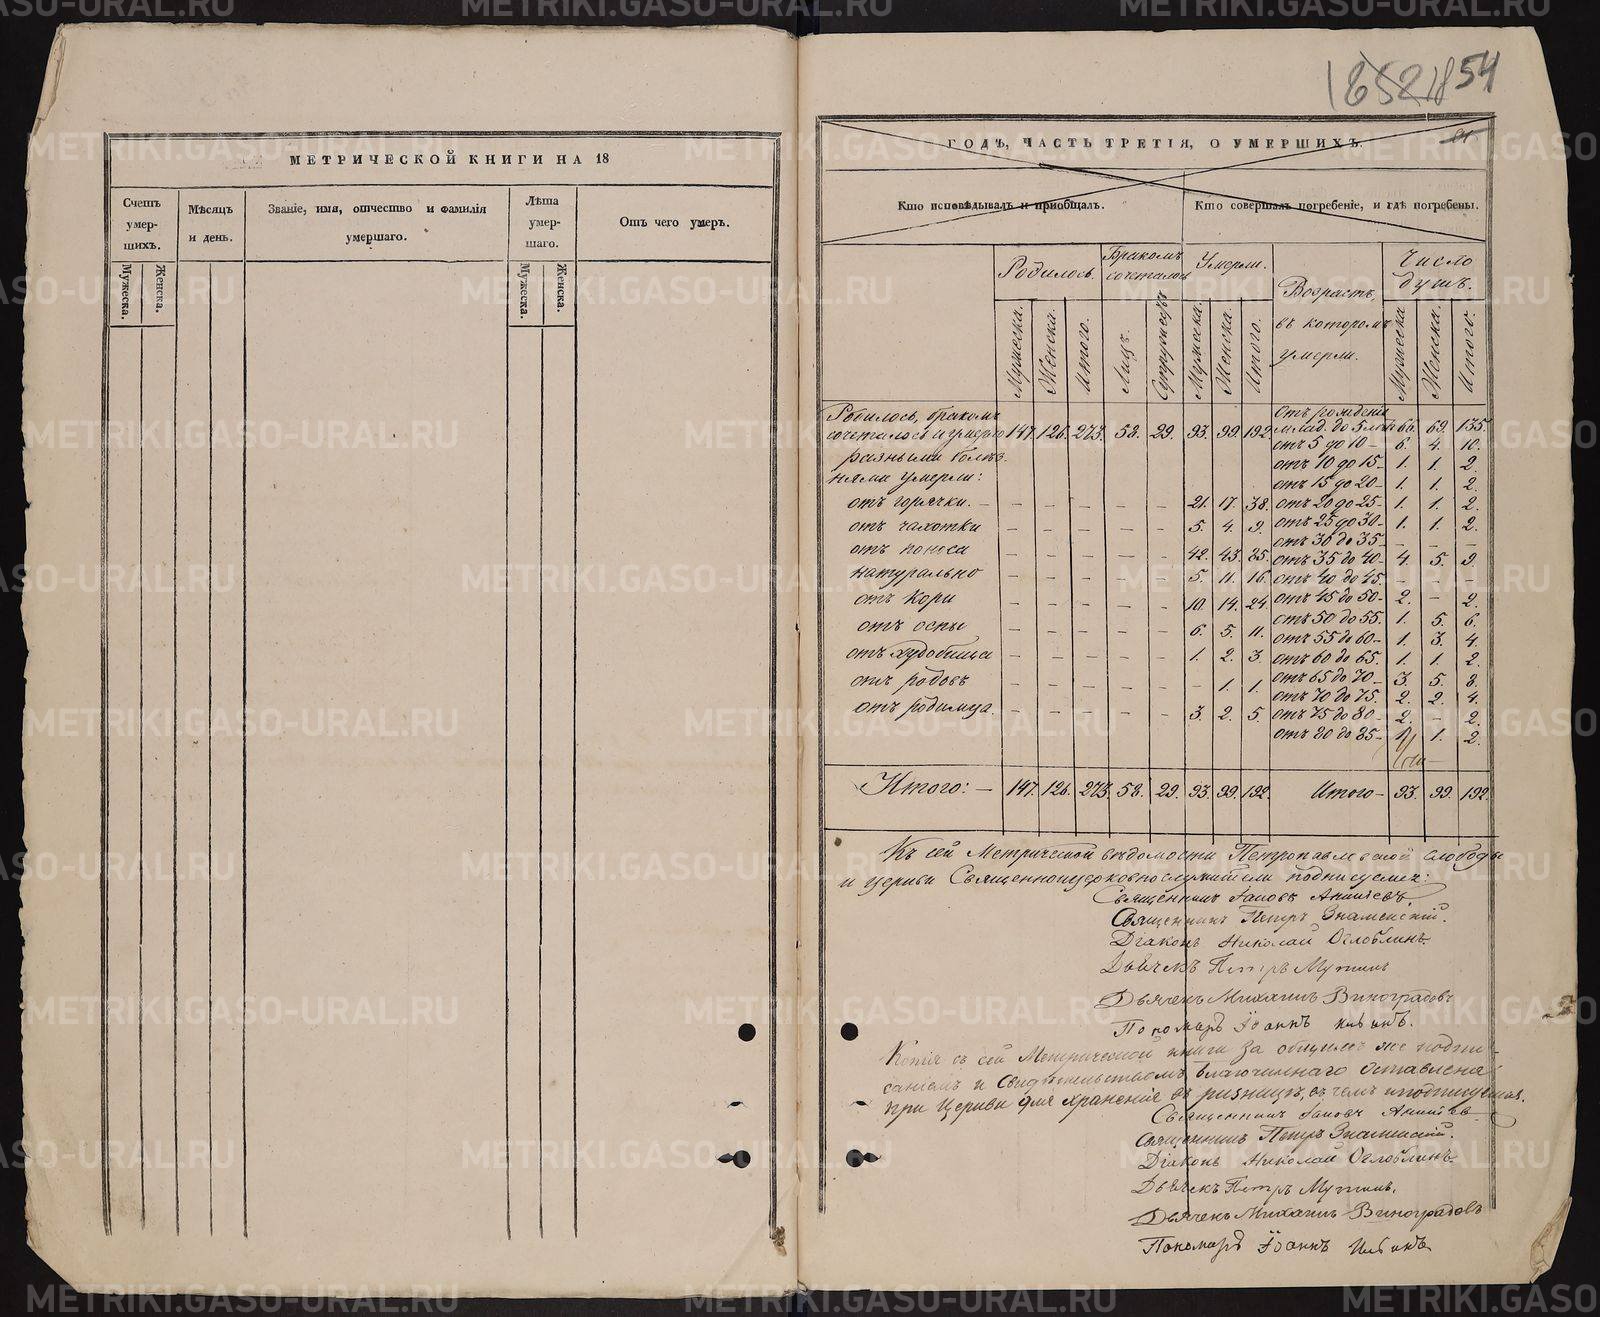 МЕТРИЧЕСКОЙ КНИГИ НА 18
Счетъ умерших.
Мужеска. Женска.
Мѣсяцъ и день.
Званіе, имя, отчество и фамилія умершаго.
Лѣта умершаго.
Мужеска. Женска.
Отъ чего умеръ.
1852 1854
ГОДЪ, ЧАСТЬ ТРЕТІЯ, О УМЕРШИХЪ.
Кто исповѣдывалъ и приобщалъ.
Кто совершалъ погребеніе, и гдѣ погребены.
Родилось. Бракомъ сочеталось Умерли. Возрастъ, въ которомъ умерли. Число душъ.
Мужеска. Женска. Итого. Лицъ. Супружествъ Мужеска. Женска. Итого. Мужеска Женска. Итого.
Родилось, бракомъ сочеталось и умерло 147. 126. 273. 58. 29. 93. 99. 192. Отъ рожденія млад. до 5 лѣтъ 66. 69. 135.
разными болѣз- отъ 5 до 10 – 6. 4. 10.
нями умерли: отъ 10 до 15 – 1. 1. 2.
отъ 15 до 20 – 1. 1. 2.
отъ горячки. – – – – – – 21. 17. 38. отъ 20 до 25 – 1. 1. 2.
отъ чахотки – – – – – 5. 4. 9. отъ 25 до 30 – 1. 1. 2.
отъ 30 до 35 – – – –
отъ поноса – – – – – 42. 43. 85. отъ 35 до 40 – 4. 5. 9.
натурально – – – – – 5. 11. 16. отъ 40 до 45. – – –
отъ кори – – – – – 10. 14. 24. отъ 45 до 50 – 2. – 2.
отъ оспы – – – – – 6. 5. 11. отъ 50 до 55. 1. 5. 6.
отъ 55 до 60 – 1. 3. 4.
отъ худобища – – – – – 1. 2. 3. отъ 60 до 65. 1. 1. 2.
отъ родовъ – – – – – – 1. 1. отъ 65 до 70 – 3. 5. 8.
отъ 70 до 75. 2. 2. 4.
отъ родимца – – – – – 3. 2. 5. отъ 75 до 80 – 2. – 2.
отъ 80 до 85 – 1. 1. 2.
Итого: – 147. 126. 273. 58. 29. 93. 99. 192. Итого – 93. 99. 192.
Къ сей Метрической вѣдомости Петропавловской слободы
и церкви Священноцерковнослужители подписуемся:
Священникъ Іаковъ
Священникъ Петръ Знаменскій.
Діаконъ Николай Оглоблинъ
Дьячекъ Петръ
Дьячекъ Михаилъ Виноградовъ
Пономарь Іоаннъ
Копія съ сей Метрической книги за общимъ же подпи-
саніемъ и свидѣтельствомъ благочиннаго оставлена
при Церкви для храненія въ ризницѣ, въ чемъ и подпишуемся.
Священникъ Іаковъ
Священникъ Петръ Знаменскій.
Діаконъ Николай Оглоблинъ
Дьячекъ Петръ
Дьячекъ Михаилъ Виноградовъ
Пономарь Іоаннъ
METRIKI.GASO-URAL.RU